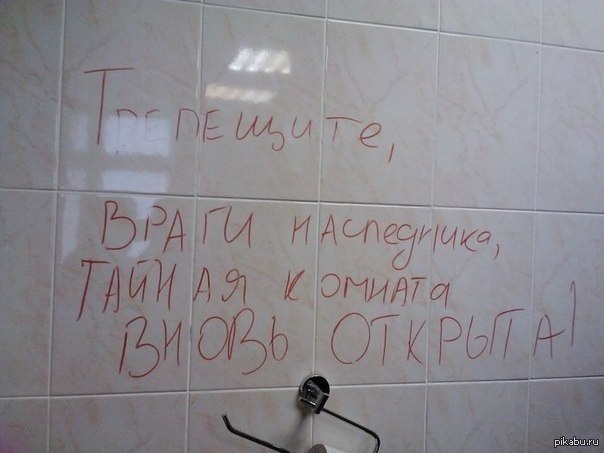 Трепещите,
ВРАГИ наследника,
ТАЙНАЯ комната
ВНОВЬ ОТКРЫТА!
pikabu.ru